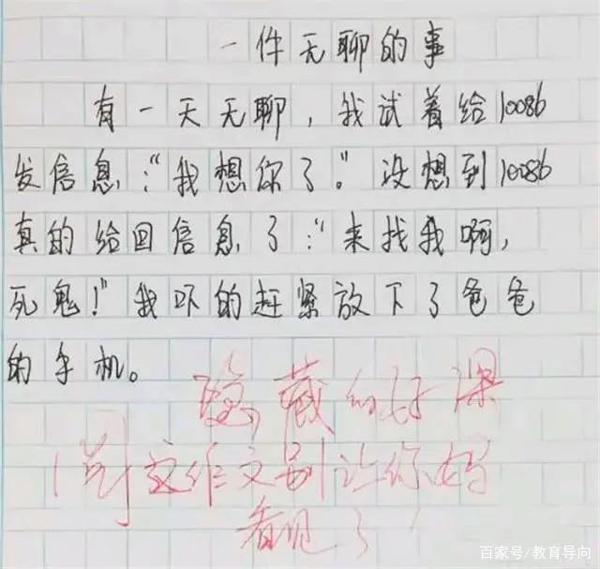 一件无聊的事
有一天无聊，我试着给10086
发信息："我想你了。"没想到10086
真的给回信息了："来找我啊，
死鬼！"我吓的赶紧放下了爸爸
的手机。
隐藏的好深
阅 这作文别让你妈
看见了！
百家号/教育导向